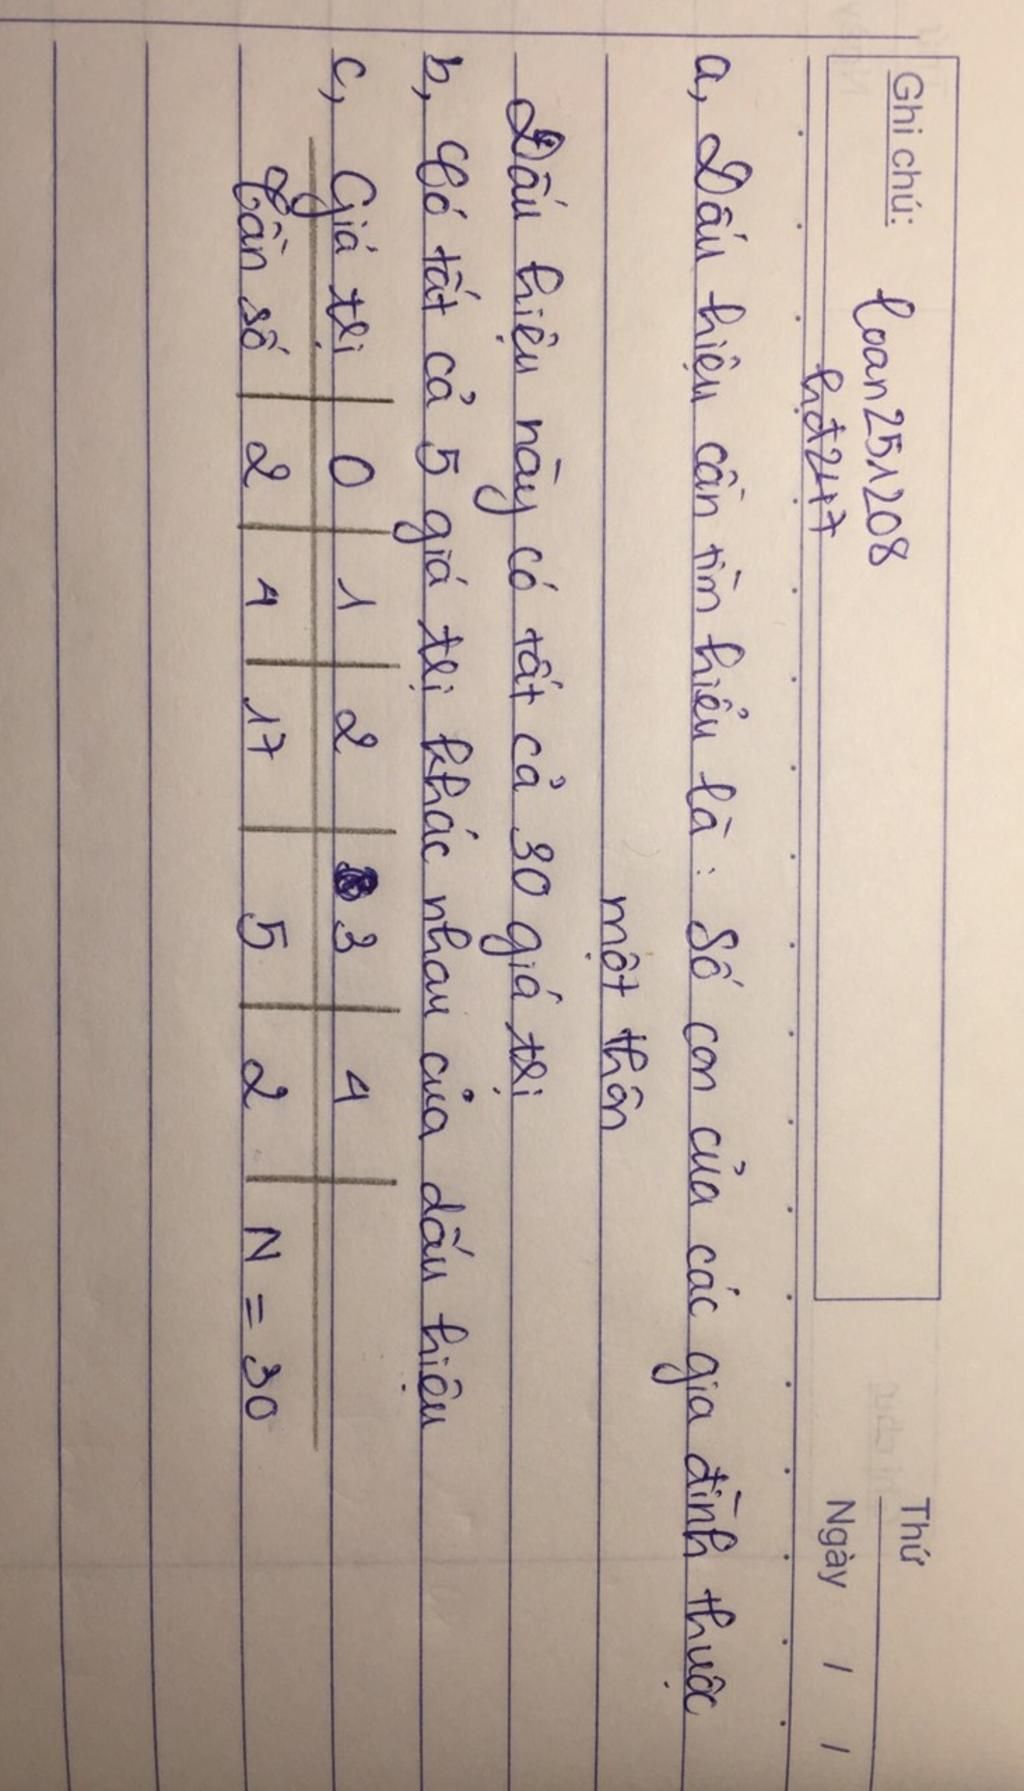 Ghi chú: loan251208
hđ247
Thứ
Ngày / /
a, Dấu hiệu cần tìm hiểu là: Số con của các gia đình thuộc
một thôn
Dấu hiệu này có tất cả 30 giá trị
b, Có tất cả 5 giá trị khác nhau của dấu hiệu
c, Giá trị 0 1 2 3 4
Tần số 2 4 17 5 2 N = 30